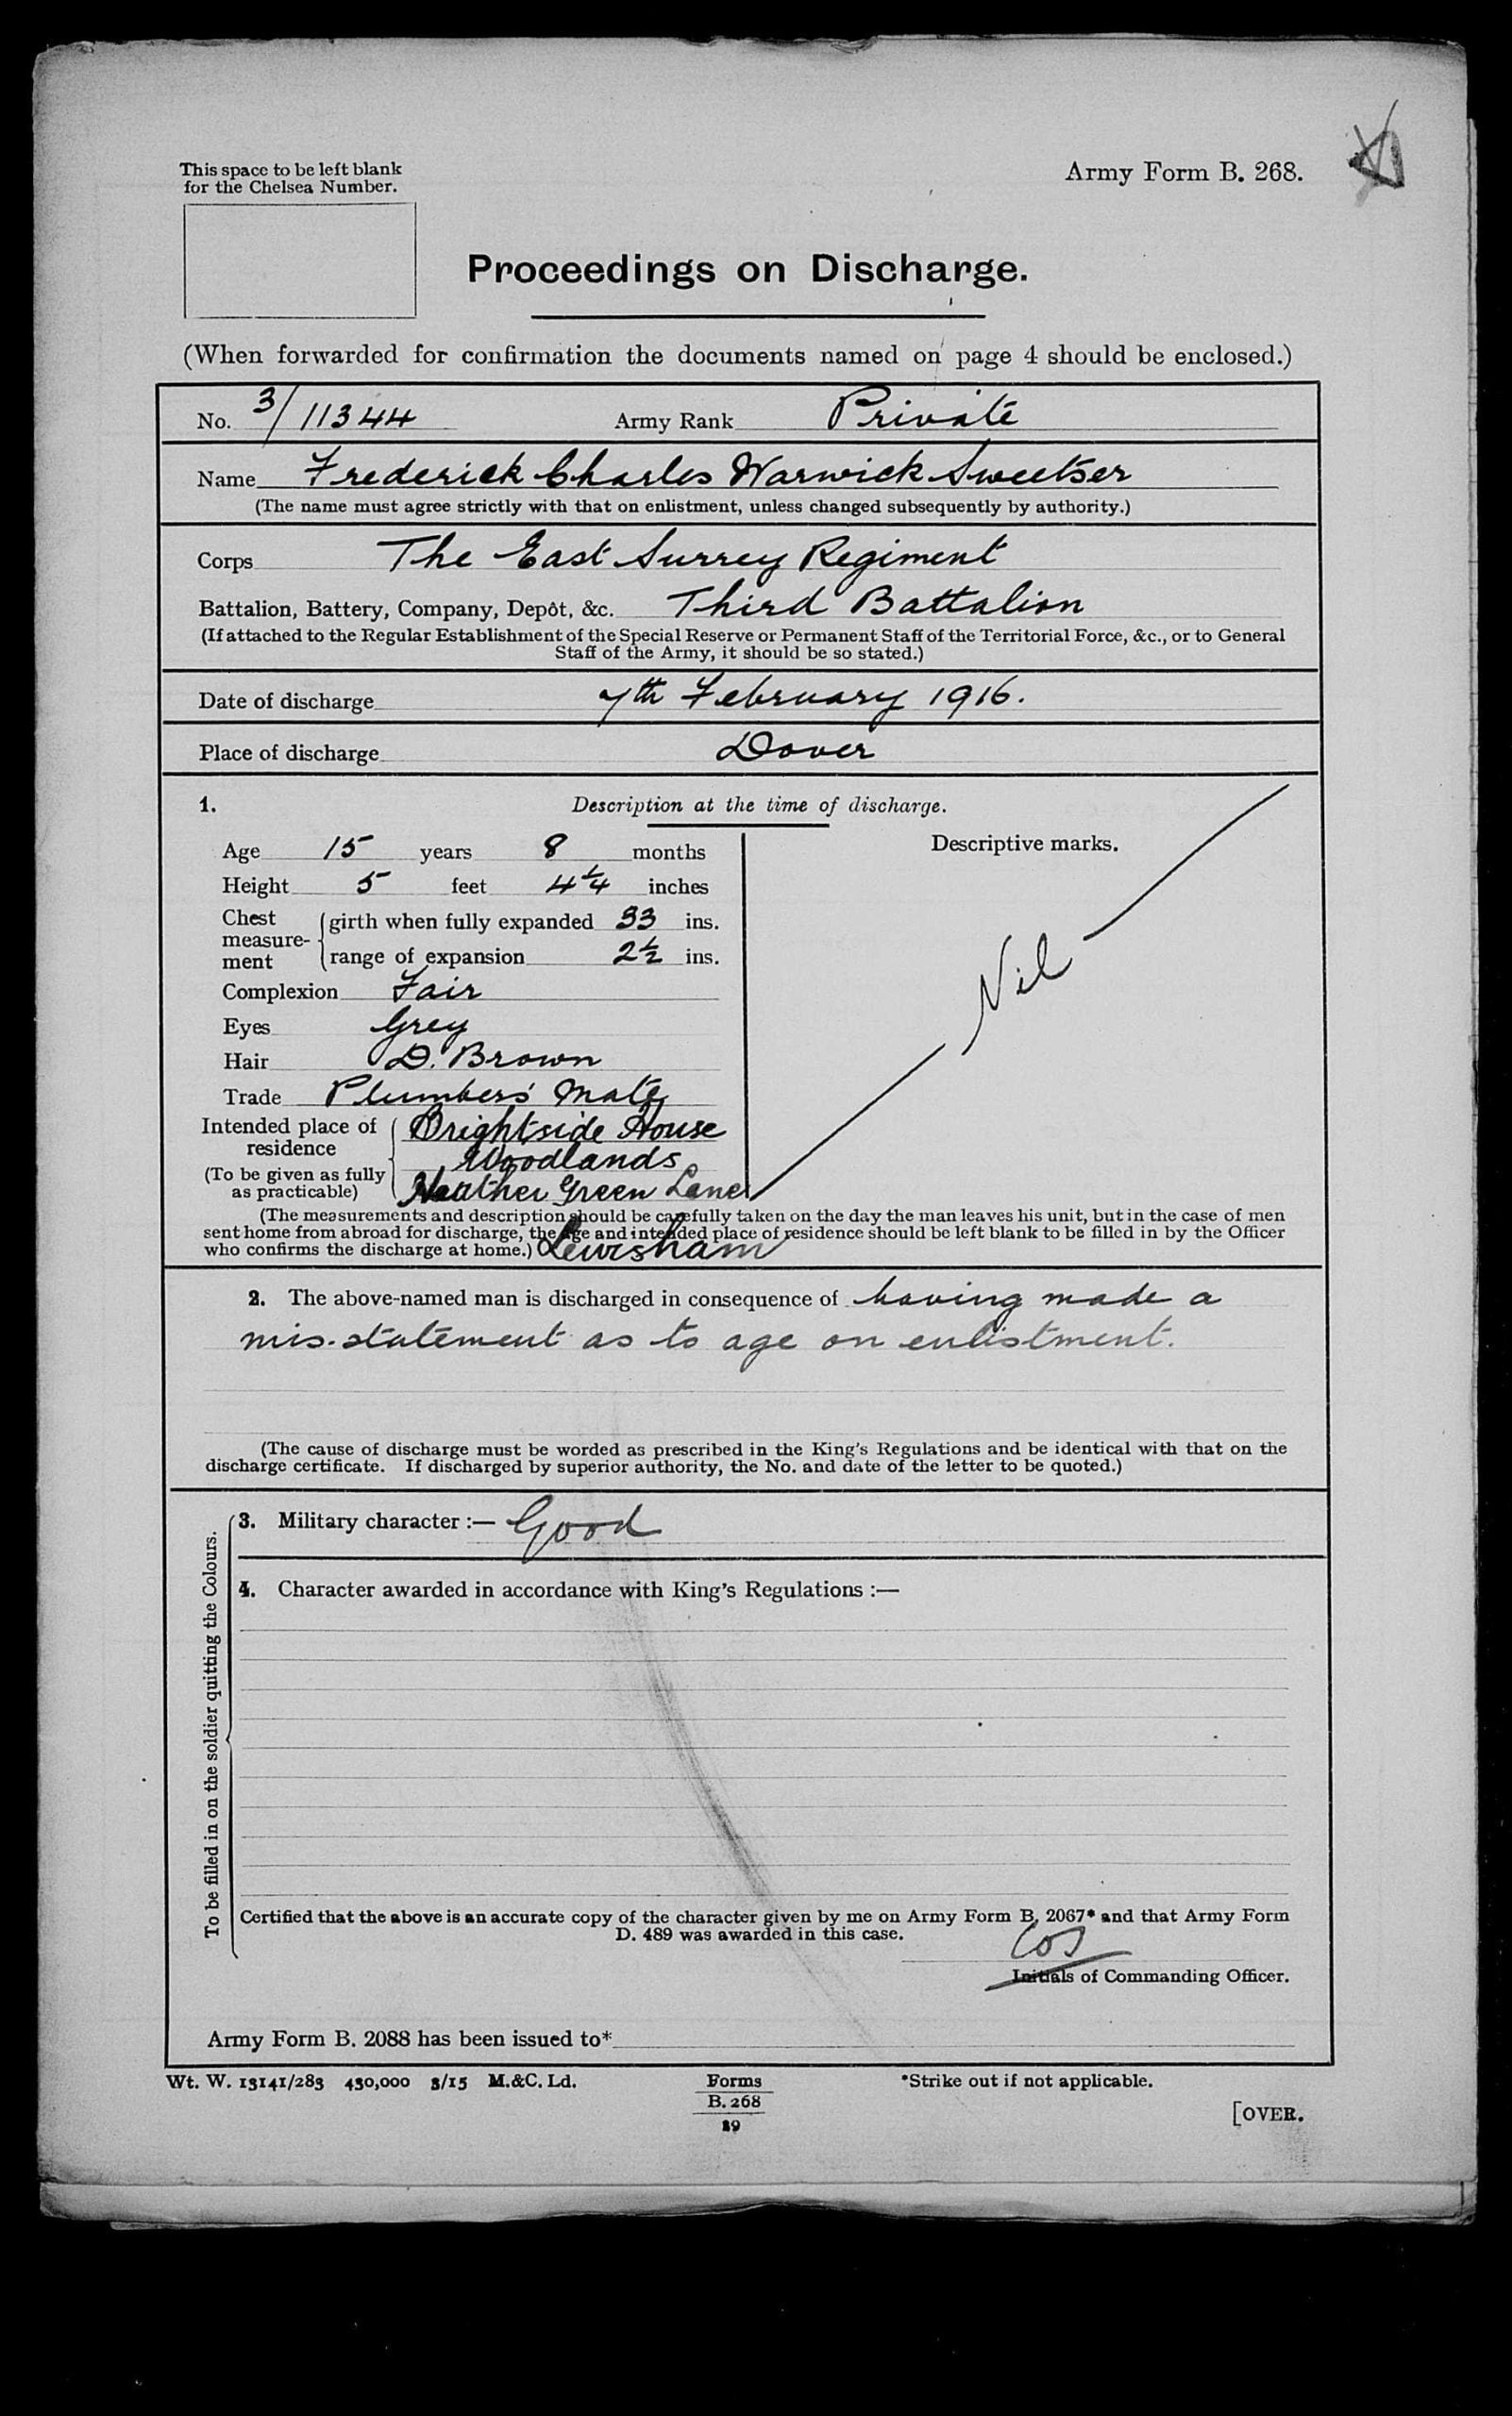 This space to be left blank
for the Chelsea Number.
Army Form B. 268.
Proceedings on Discharge.
(When forwarded for confirmation the documents named on page 4 should be enclosed.)
No. 3/11344 Army Rank Private
Name Frederick Charles Warwick Sweetser
(The name must agree strictly with that on enlistment, unless changed subsequently by authority.)
Corps The East Surrey Regiment
Battalion, Battery, Company, Depôt, &c. Third Battalion
(If attached to the Regular Establishment of the Special Reserve or Permanent Staff of the Territorial Force, &c., or to General
Staff of the Army, it should be so stated.)
Date of discharge 7th February 1916.
Place of discharge Dover
1. Description at the time of discharge.
Age 15 years 8 months
Height 5 feet 4 1/4 inches
Chest measurement girth when fully expanded 33 ins.
range of expansion 2 1/2 ins.
Complexion Fair
Eyes Grey
Hair D. Brown
Trade Plumbers' Mate
Intended place of residence (To be given as fully as practicable) Brightside House
Woodlands
Heather Green Lane
Lewisham
Descriptive marks.
Nil
(The measurements and description should be carefully taken on the day the man leaves his unit, but in the case of men
sent home from abroad for discharge, the age and intended place of residence should be left blank to be filled in by the Officer
who confirms the discharge at home.)
2. The above-named man is discharged in consequence of having made a
mis-statement as to age on enlistment.
(The cause of discharge must be worded as prescribed in the King's Regulations and be identical with that on the
discharge certificate. If discharged by superior authority, the No. and date of the letter to be quoted.)
To be filled in on the soldier quitting the Colours.
3. Military character :— Good
4. Character awarded in accordance with King's Regulations :—
Certified that the above is an accurate copy of the character given by me on Army Form B. 2067* and that Army Form
D. 489 was awarded in this case.
Initials of Commanding Officer.
Army Form B. 2088 has been issued to*
Wt. W. 13141/283 430,000 3/15 M.&C. Ld.
Forms
B. 268
29
*Strike out if not applicable.
[OVER.